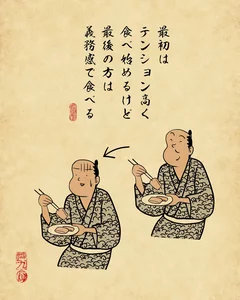 最初は
テンション高く
食べ始めるけど
最後の方は
義務感で食べる